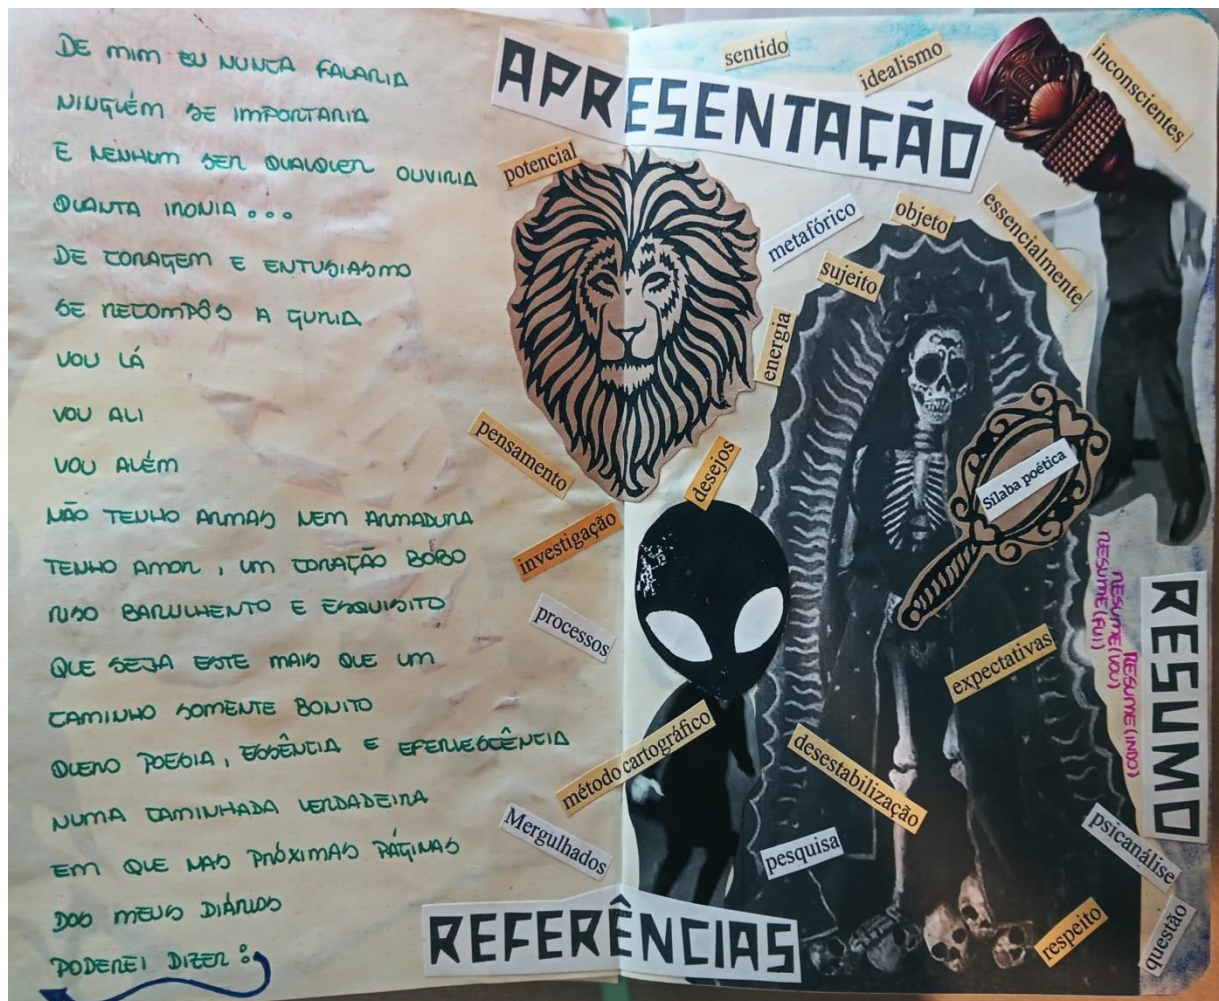 DE MIM EU NUNCA FALARIA
NINGUÉM SE IMPORTARIA
E NENHUM SER QUALQUER OUVIRIA
QUANTA IRONIA...
DE CORAGEM E ENTUSIASMO
SE RECOMPÔS A GURIA
VOU LÁ
VOU ALI
VOU ALÉM
NÃO TENHO ARMAS NEM ARMADURA
TENHO AMOR, UM CORAÇÃO BOBO
RISO BARULHENTO E ESQUISITO
QUE SEJA ESTE MAIS QUE UM
CAMINHO SOMENTE BONITO
QUERO POESIA, ESSÊNCIA E EFERVESCÊNCIA
NUMA CAMINHADA VERDADEIRA
EM QUE NAS PRÓXIMAS PÁGINAS
DOS MEUS DIÁRIOS
PODEREI DIZER:
APRESENTAÇÃO
sentido
idealismo
inconscientes
potencial
metafórico
objeto
essencialmente
sujeito
energia
pensamento
desejos
Sílaba poética
investigação
processos
expectativas
método cartográfico
desestabilização
Mergulhados
pesquisa
psicanálise
respeito
questão
RESUMO
RESUME(INDO)
RESUME(VOU)
RESUME(FUI)
REFERÊNCIAS